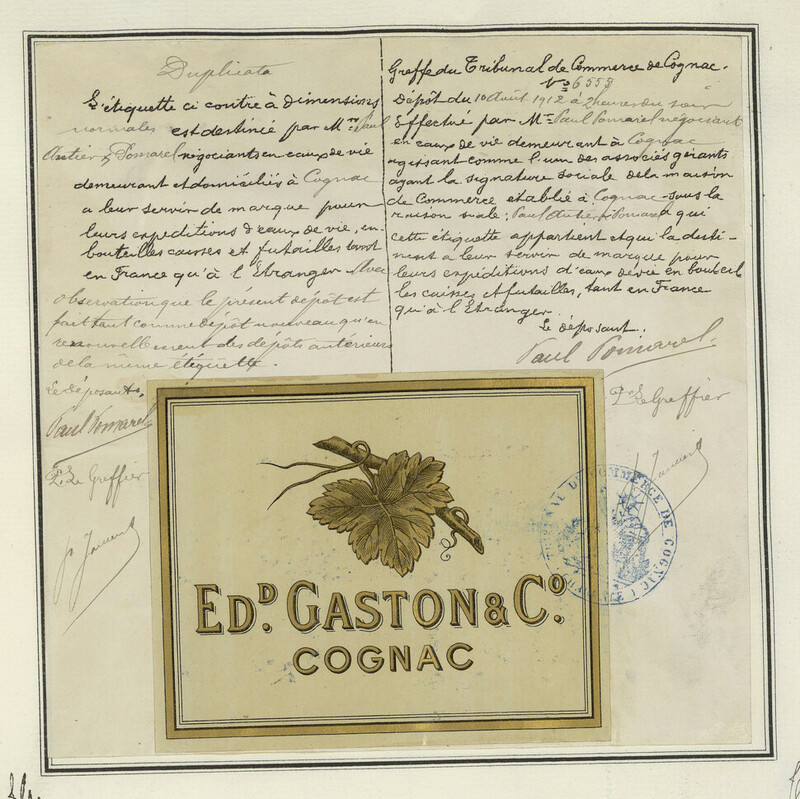 Duplicata
L'étiquette ci contre à dimensions
normales est destiné par Mrs Paul
Antier & Pomarel négociants en eaux de vie
demeurant et domiciliés à Cognac
a leur servir de marque pour
leurs expéditions d'eaux de vie, en
bouteilles caisses et futailles tant
en France qu'à l'Etranger. Avec
observation que le présent dépôt est
fait tant comme dépôt nouveau qu'en
renouvellement des dépôts antérieurs
de la même étiquette.
Le déposant,
Paul Pomarel
P. Le Greffier
Greffe du Tribunal de Commerce de Cognac.
No 6558
Dépôt du 10 Août 1912 à 2 heures du soir
Effectué par Mr Paul Pomarel négociant
en eaux de vie demeurant à Cognac
agissant comme l'un des associés gérants
ayant la signature sociale de la maison
de Commerce etablié à Cognac sous la
raison siale: Paul Antier & Pomarel à qui
cette étiquette appartient et qui la desti-
nent a leur servir de marque pour
leurs expéditions d'eaux de vie en bouteil
les caisses et futailles, tant en France
qu'à l'Etranger.
Le déposant.
Paul Pomarel
P. Le Greffier
TRIBUNAL DE COMMERCE DE COGNAC
EDD. GASTON & CO.
COGNAC